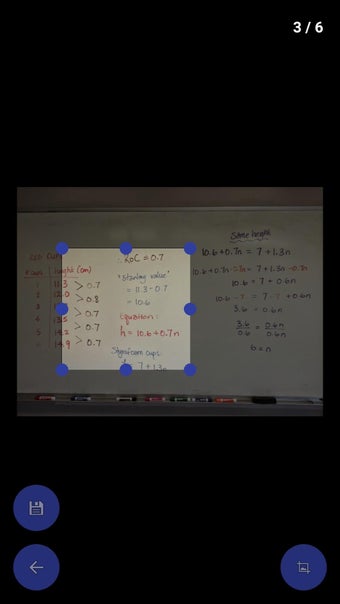 3 / 6
Same height
10.6+0.7n = 7+1.3n
10.6+0.7n-0.7n = 7+1.3n-0.7n
10.6 = 7+0.6n
10.6-7 = 7-7+0.6n
3.6 = 0.6n
3.6 = 0.6n
0.6 0.6n
6=n
Red Cups
# cups height (cm)
1 11.3
2 12.0
3
4 13.5
5 14.2
14.9
> 0.7
> 0.8
> 0.7
> 0.7
> 0.7
∴ RoC = 0.7
"Starting value"
= 11.3-0.7
= 10.6
Equation:
h = 10.6+0.7n
Styrofoam cups:
7+1.3n